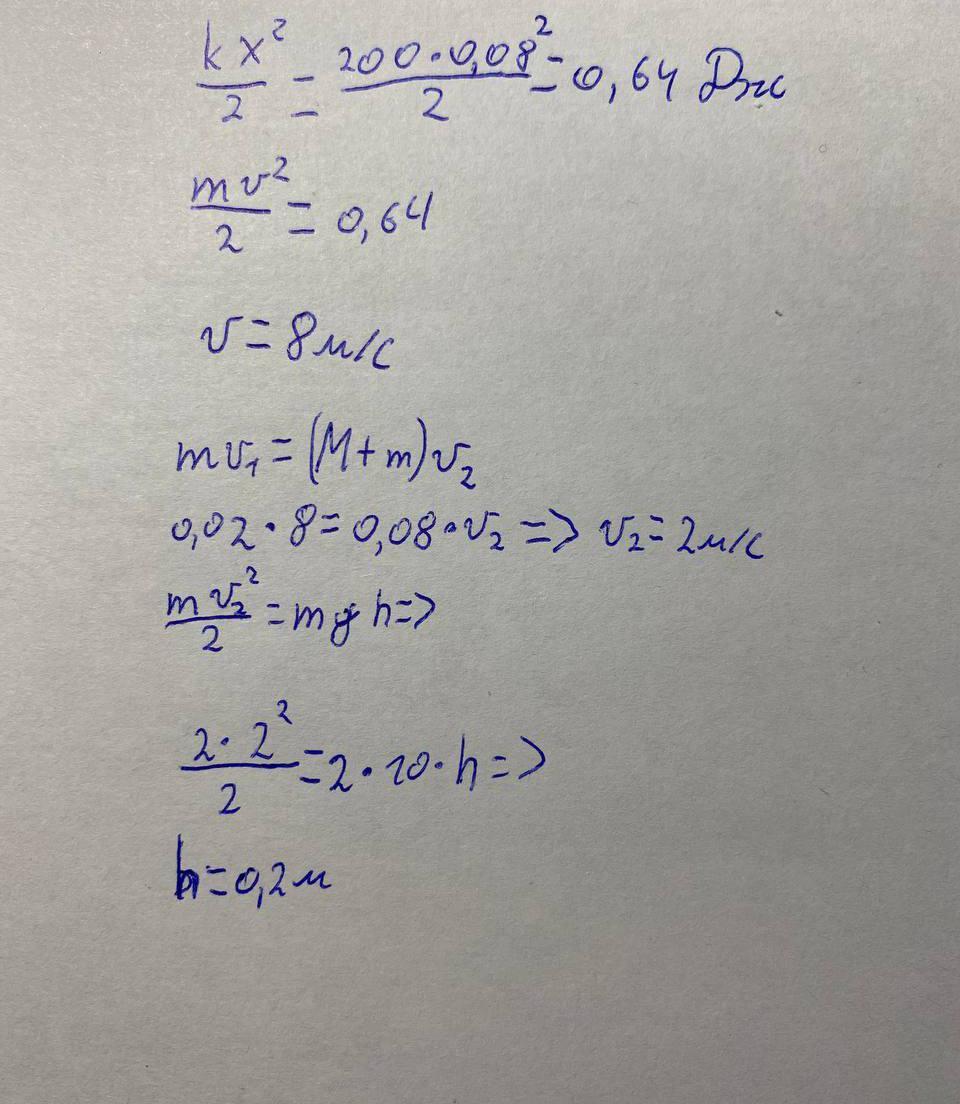 kx²/2 = 200·0,08²/2 = 0,64 Дж
mv²/2 = 0,64
v = 8 м/с
mv₁ = (M+m)v₂
0,02·8 = 0,08·v₂ => v₂ = 2 м/с
mv₂²/2 = mgh =>
2·2²/2 = 2·10·h =>
h = 0,2 м